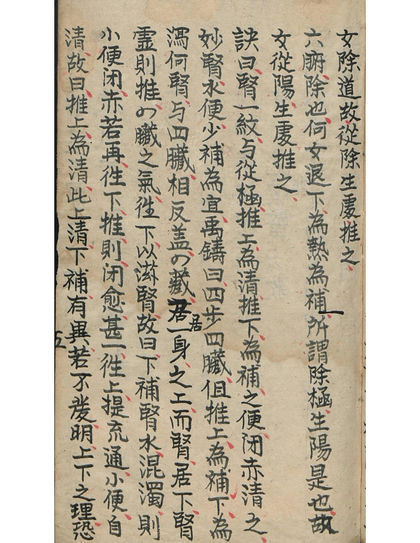 女除道故從除生處推之
六腑除也何女退下為熱為補所謂除極生陽是也故
女從陽生處推之
訣曰腎一紋与從極推上為清推下為補之便閉赤清之
妙腎水便少補為宜禹鑄曰四步四臟但推上為補下為
瀉何腎与四臟相反盖の臟居一身之上而腎居下腎
靈則推の臟之氣徃下以滋腎故曰下補腎水混濁則
小便閉赤若再徃下推則閉愈甚一徃上提流通小便自
清故曰推上為清此上清下補有異若不發明上下之理恐